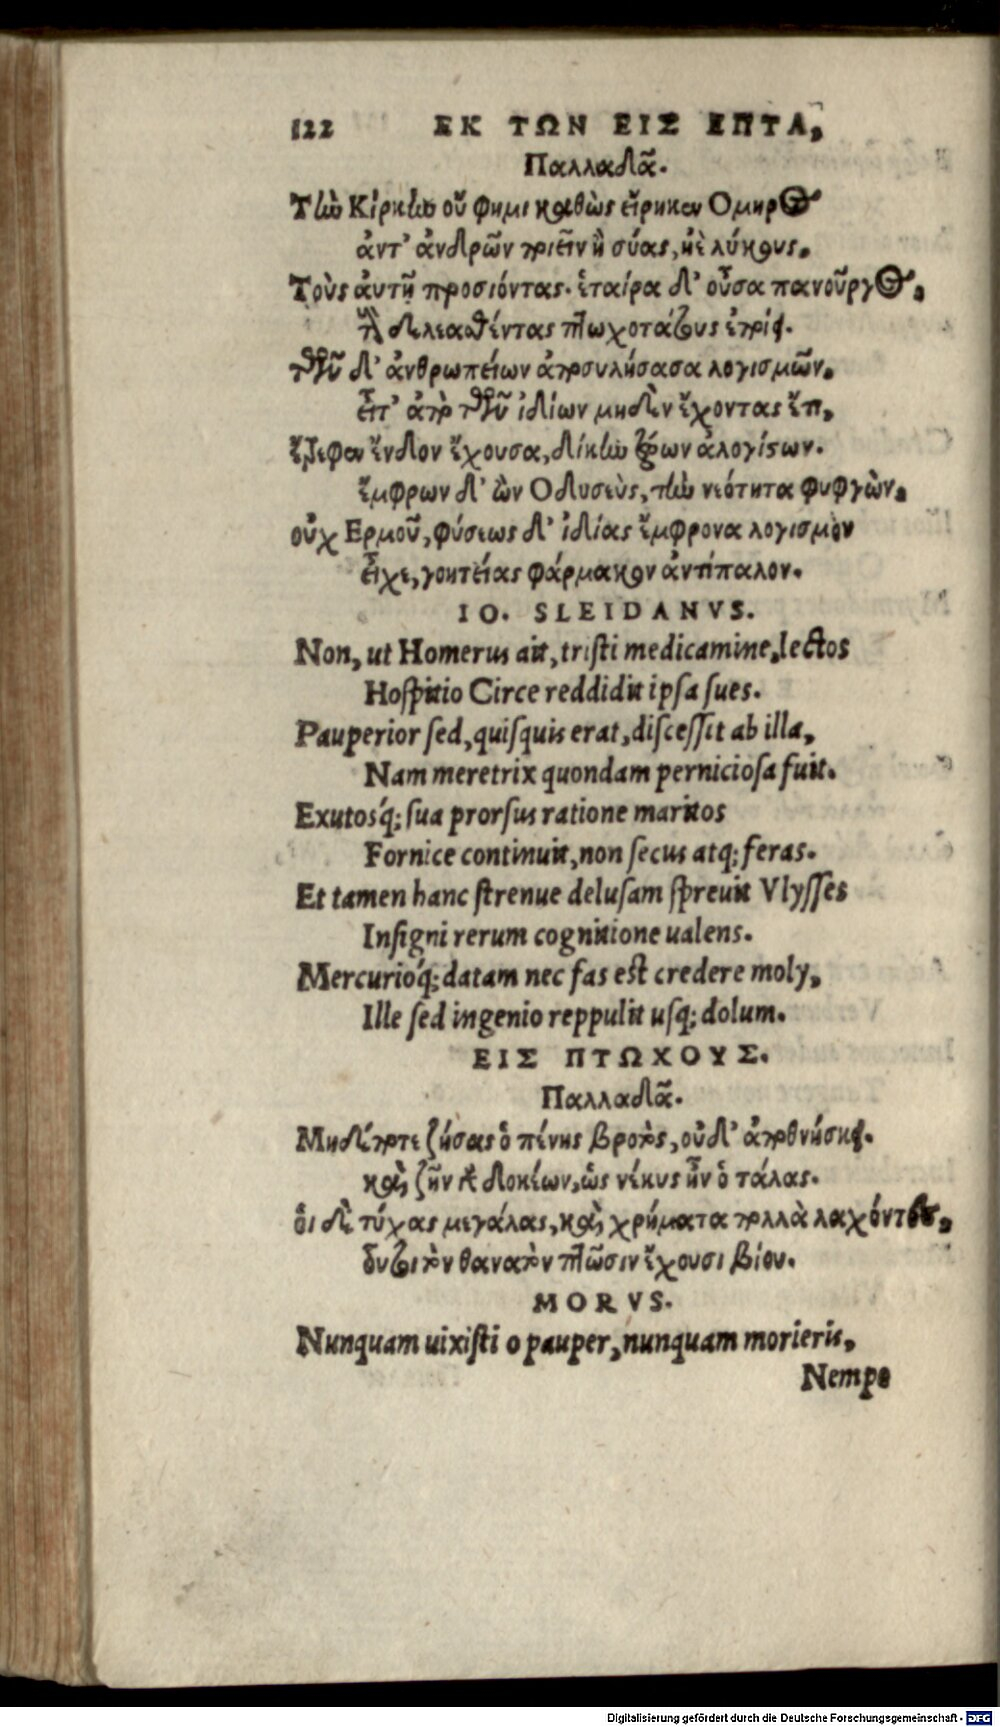 122 ΕΚ ΤΩΝ ΕΙΣ ΕΠΤΑ,
Παλλαδᾶ.
Τὴν Κίρκην οὔ φημι καθὼς εἴρηκεν Ομηρος
ἀντ' ἀνδρῶν ποιεῖν ἢ σύας, ἠὲ λύκους.
Τοὺς ἀυτῇ προσιόντας. ἑταίρα δ' οὖσα πανοῦργος,
τοὺς δελεασθέντας πτωχοτάτους ἐποίει.
τῶν δ' ἀνθρωπείων ἀποσυλήσασα λογισμῶν.
εἶτ' ἀπὸ τῶν ἰδίων μηδὲν ἔχοντας ἔτι,
ἔτρεφεν ἔνδον ἔχουσα, δίκην ζώων ἀλογίστων.
ἔμφρων δ' ὢν Οδυσεὺς, τὴν νεότητα φυγὼν,
οὐχ Ερμοῦ, φύσεως δ' ἰδίας ἔμφρονα λογισμὸν
εἶχε, γοητείας φάρμακον ἀντίπαλον.
IO. SLEIDANVS.
Non, ut Homerus ait, tristi medicamine, lectos
Hospitio Circe reddidit ipsa sues.
Pauperior sed, quisquis erat, discessit ab illa,
Nam meretrix quondam perniciosa fuit.
Exutosq́; sua prorsus ratione maritos
Fornice continuit, non secus atq; feras.
Et tamen hanc strenue delusam spreuit Vlysses
Insigni rerum cognitione ualens.
Mercurioq́; datam nec fas est credere moly,
Ille sed ingenio reppulit usq; dolum.
ΕΙΣ ΠΤΩΧΟΥΣ.
Παλλαδᾶ.
Μηδέποτε ζήσας ὁ πένης βροτὸς, οὐδ' ἀποθνήσκει.
καὶ ζῆν γὰρ δοκέων, ὡς νέκυς ἦν ὁ τάλας.
ὁι δὲ τύχας μεγάλας, καὶ χρήματα πολλὰ λαχόντες,
ὅυτοι τὸν θανατὸν πτῶσιν ἔχουσι βίου.
MORVS.
Nunquam uixisti o pauper, nunquam morieris,
Nempe
Digitalisierung gefördert durch die Deutsche Forschungsgemeinschaft - DFG